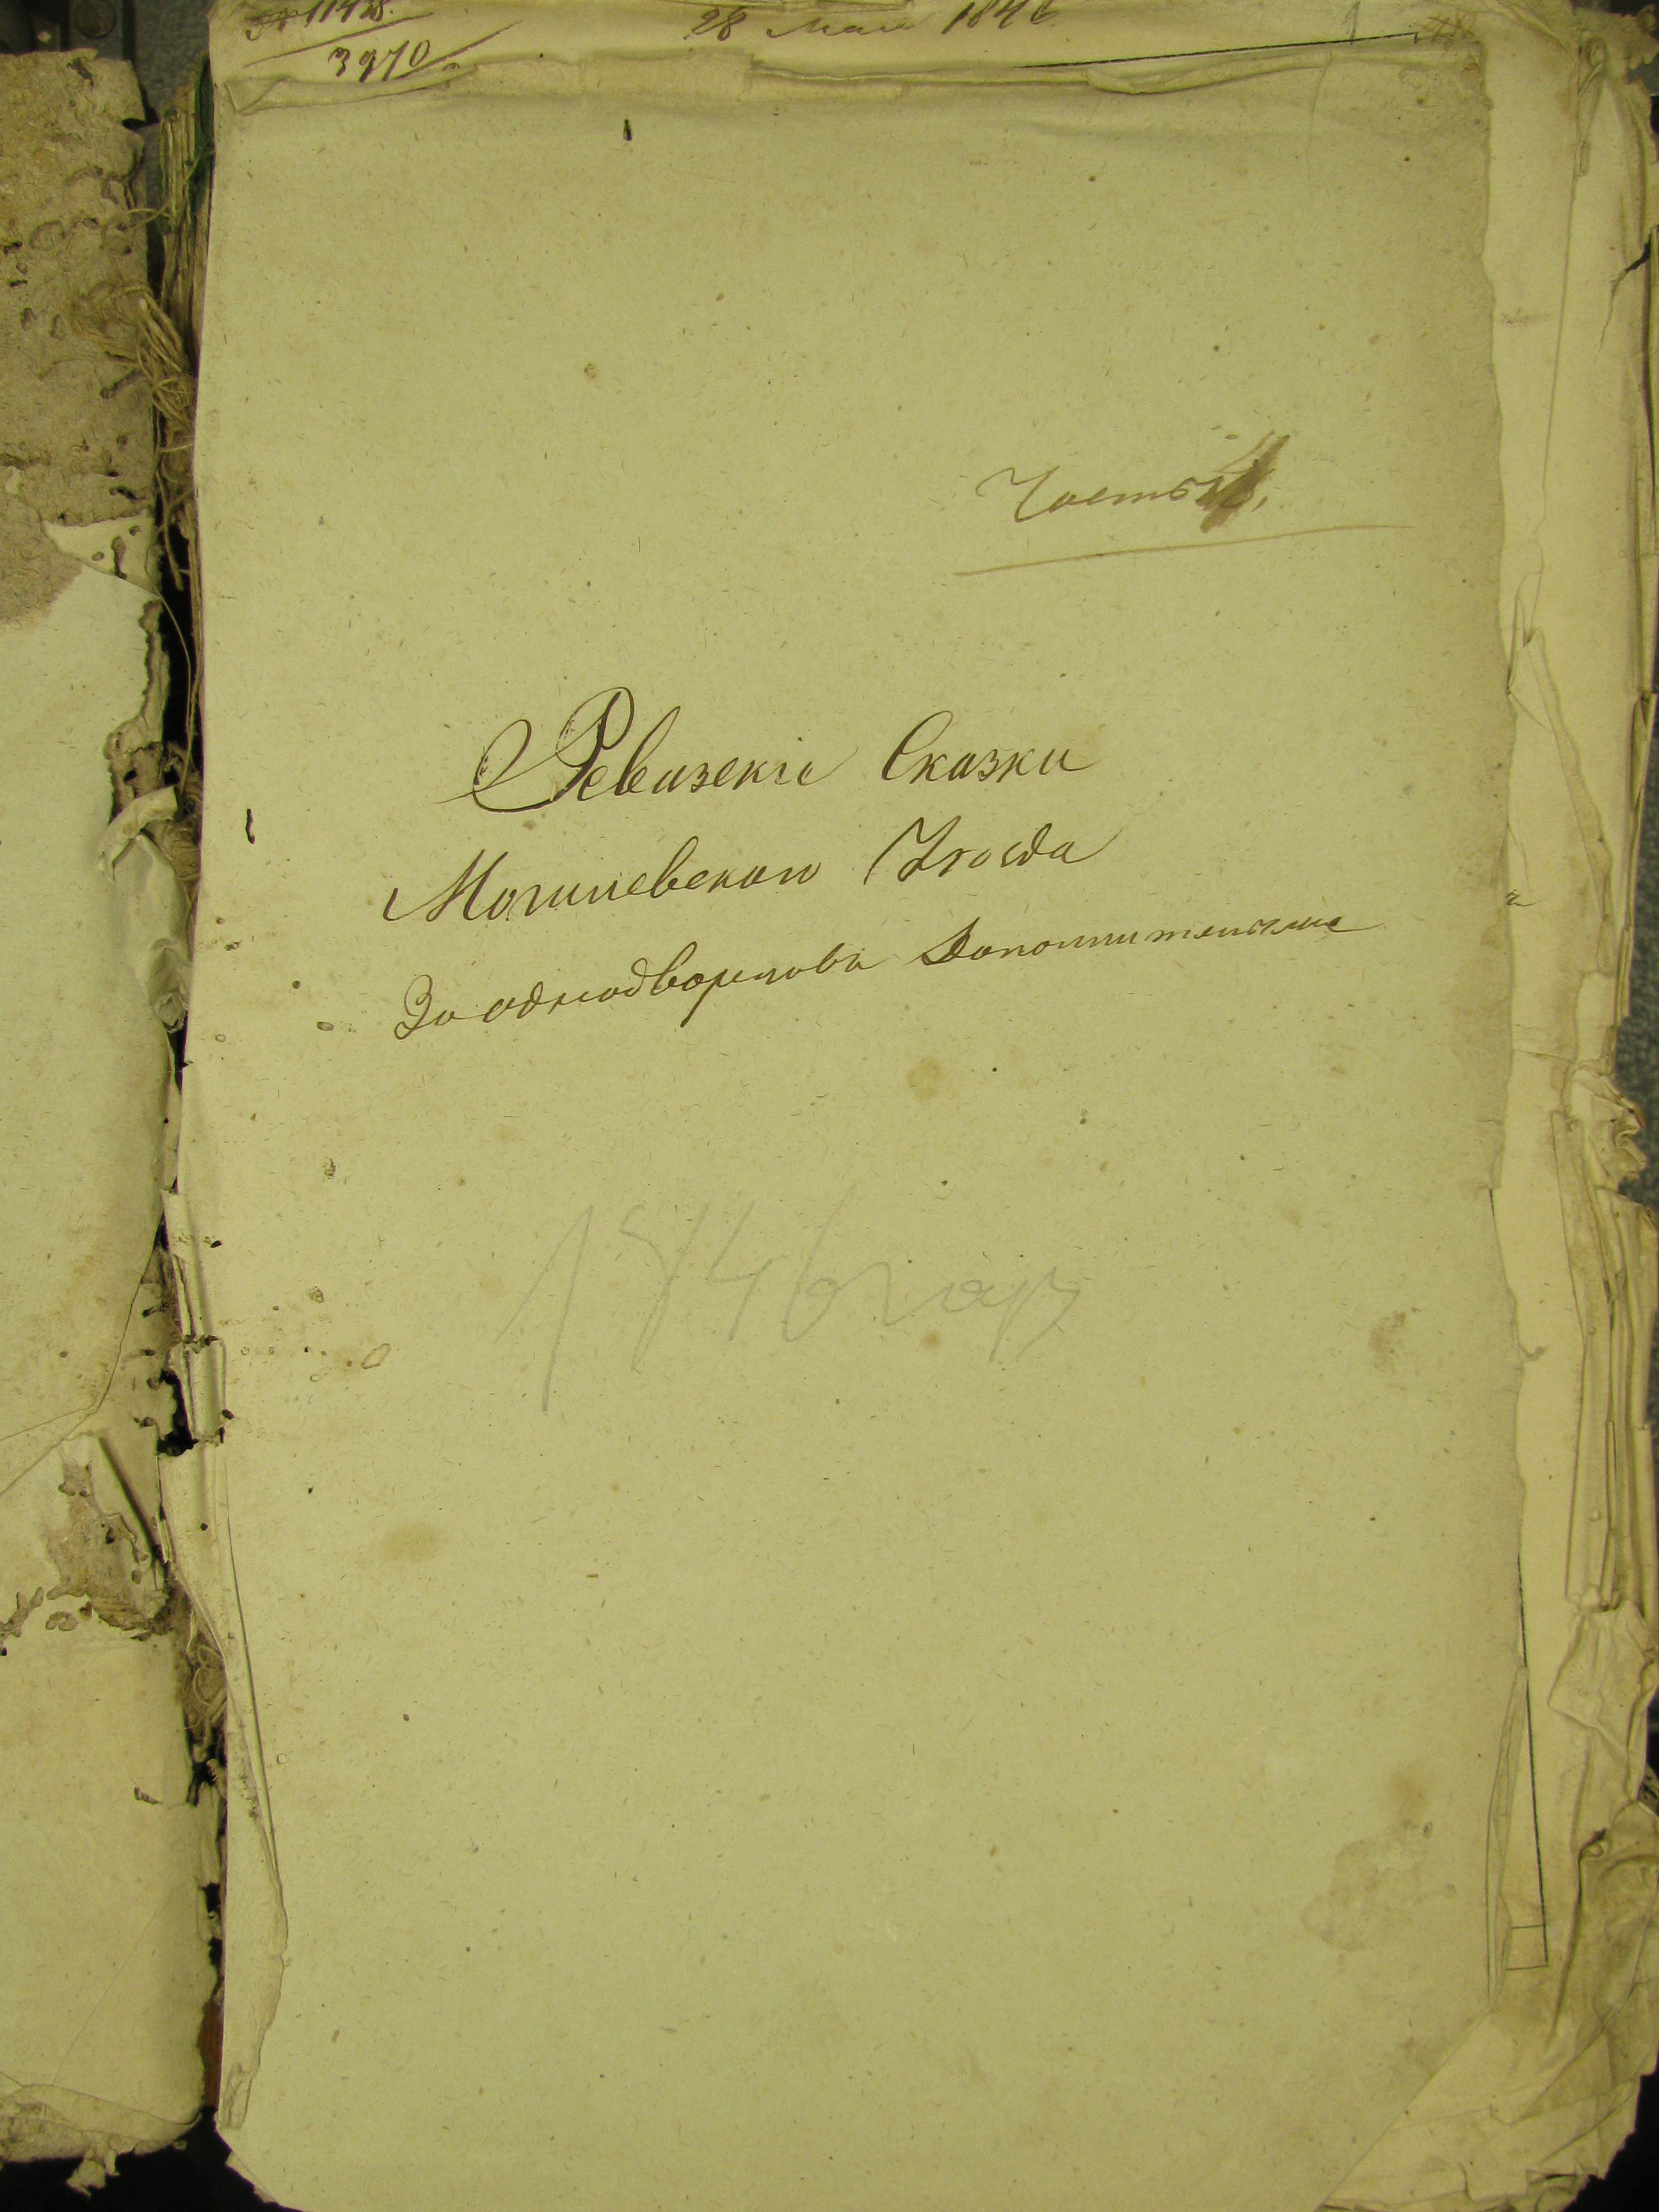 11428.
3970
28 Мая 1846
1
Часть
Ревизскіе Сказки
Могилевскаго Уѣзда
За однодворцовъ Дополнительные
1846 год